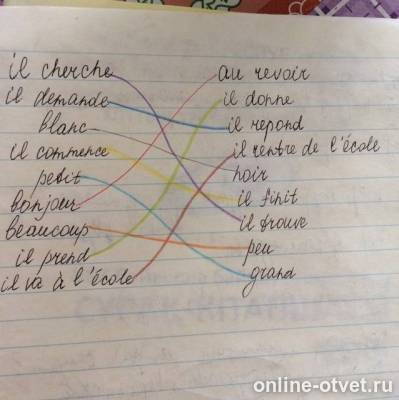 il cherche
au revoir
il demande
il donne
blanc
il repond
il commence
il rentre de l'école
petit
noir
bonjour
il finit
beaucoup
il trouve
il prend
peu
il va à l'école
grand
online-otvet.ru